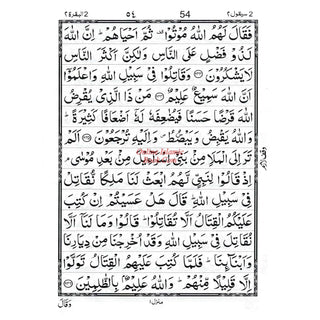 2 سيقول ٢ 54 ٥٤ 2 البقرة ٢
فَقَالَ لَهُمُ اللّٰهُ مُوْتُوْا ثُمَّ اَحْيَاهُمْ ؕ اِنَّ اللّٰهَ
لَذُوْ فَضْلٍ عَلَى النَّاسِ وَلٰكِنَّ اَكْثَرَ النَّاسِ
لَا يَشْكُرُوْنَ وَقَاتِلُوْا فِيْ سَبِيْلِ اللّٰهِ وَاعْلَمُوْۤا
اَنَّ اللّٰهَ سَمِيْعٌ عَلِيْمٌ مَنْ ذَا الَّذِيْ يُقْرِضُ
اللّٰهَ قَرْضًا حَسَنًا فَيُضٰعِفَهٗ لَهٗۤ اَضْعَافًا كَثِيْرَةً ؕ
وَاللّٰهُ يَقْبِضُ وَيَبْصُۜطُ وَاِلَيْهِ تُرْجَعُوْنَ اَلَمْ
تَرَ اِلَى الْمَلَاِ مِنْۢ بَنِيْۤ اِسْرَآءِيْلَ مِنْۢ بَعْدِ مُوْسٰى ۘ
اِذْ قَالُوْا لِنَبِيٍّ لَّهُمُ ابْعَثْ لَنَا مَلِكًا نُّقَاتِلْ
فِيْ سَبِيْلِ اللّٰهِ ؕ قَالَ هَلْ عَسَيْتُمْ اِنْ كُتِبَ
عَلَيْكُمُ الْقِتَالُ اَلَّا تُقَاتِلُوْا ؕ قَالُوْا وَمَا لَنَاۤ اَلَّا
نُقَاتِلَ فِيْ سَبِيْلِ اللّٰهِ وَقَدْ اُخْرِجْنَا مِنْ دِيَارِنَا
وَاَبْنَآئِنَا ؕ فَلَمَّا كُتِبَ عَلَيْهِمُ الْقِتَالُ تَوَلَّوْا
اِلَّا قَلِيْلًا مِّنْهُمْ ؕ وَاللّٰهُ عَلِيْمٌۢ بِالظّٰلِمِيْنَ
منزل ١ وَقَالَ